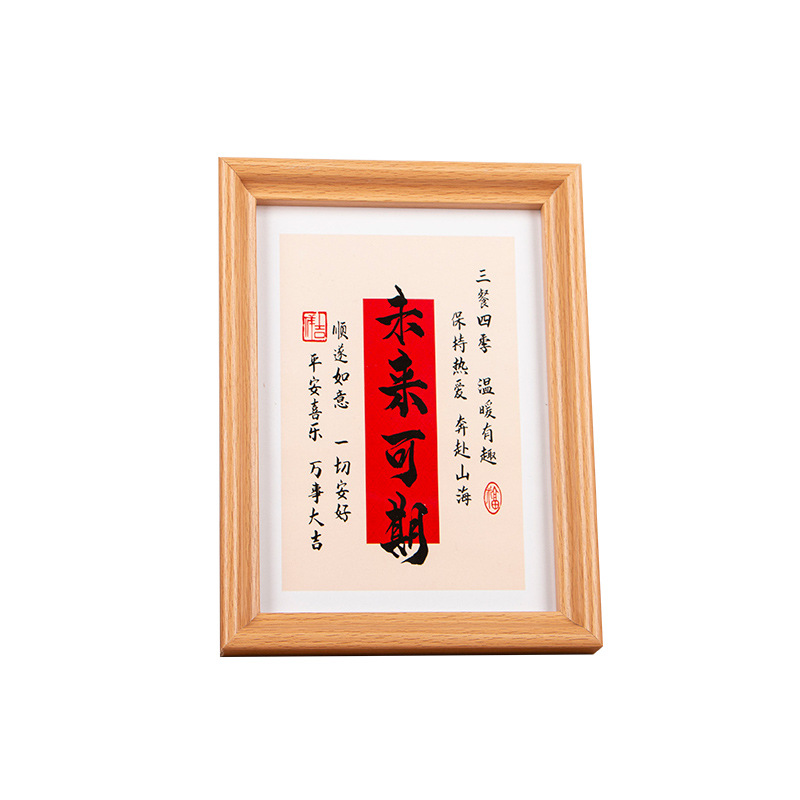 三餐四季 温暖有趣
保持热爱 奔赴山海
福
未来可期
顺遂如意 一切安好
平安喜乐 万事大吉
吉祥